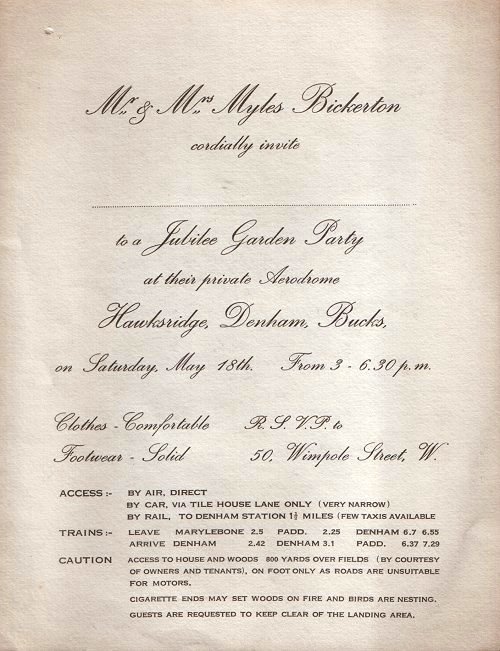 Mr & Mrs Myles Bickerton
cordially invite
to a Jubilee Garden Party
at their private Aerodrome
Hawksridge, Denham, Bucks,
on Saturday, May 18th. From 3 - 6.30 p.m.
Clothes - Comfortable R.S.V.P. to
Footwear - Solid 50, Wimpole Street, W.
ACCESS :- BY AIR, DIRECT
BY CAR, VIA TILE HOUSE LANE ONLY (VERY NARROW)
BY RAIL, TO DENHAM STATION 1½ MILES (FEW TAXIS AVAILABLE
TRAINS :- LEAVE MARYLEBONE 2.5 PADD. 2.25 DENHAM 6.7 6.55
ARRIVE DENHAM 2.42 DENHAM 3.1 PADD. 6.37 7.29
CAUTION ACCESS TO HOUSE AND WOODS 800 YARDS OVER FIELDS (BY COURTESY
OF OWNERS AND TENANTS), ON FOOT ONLY AS ROADS ARE UNSUITABLE
FOR MOTORS.
CIGARETTE ENDS MAY SET WOODS ON FIRE AND BIRDS ARE NESTING.
GUESTS ARE REQUESTED TO KEEP CLEAR OF THE LANDING AREA.